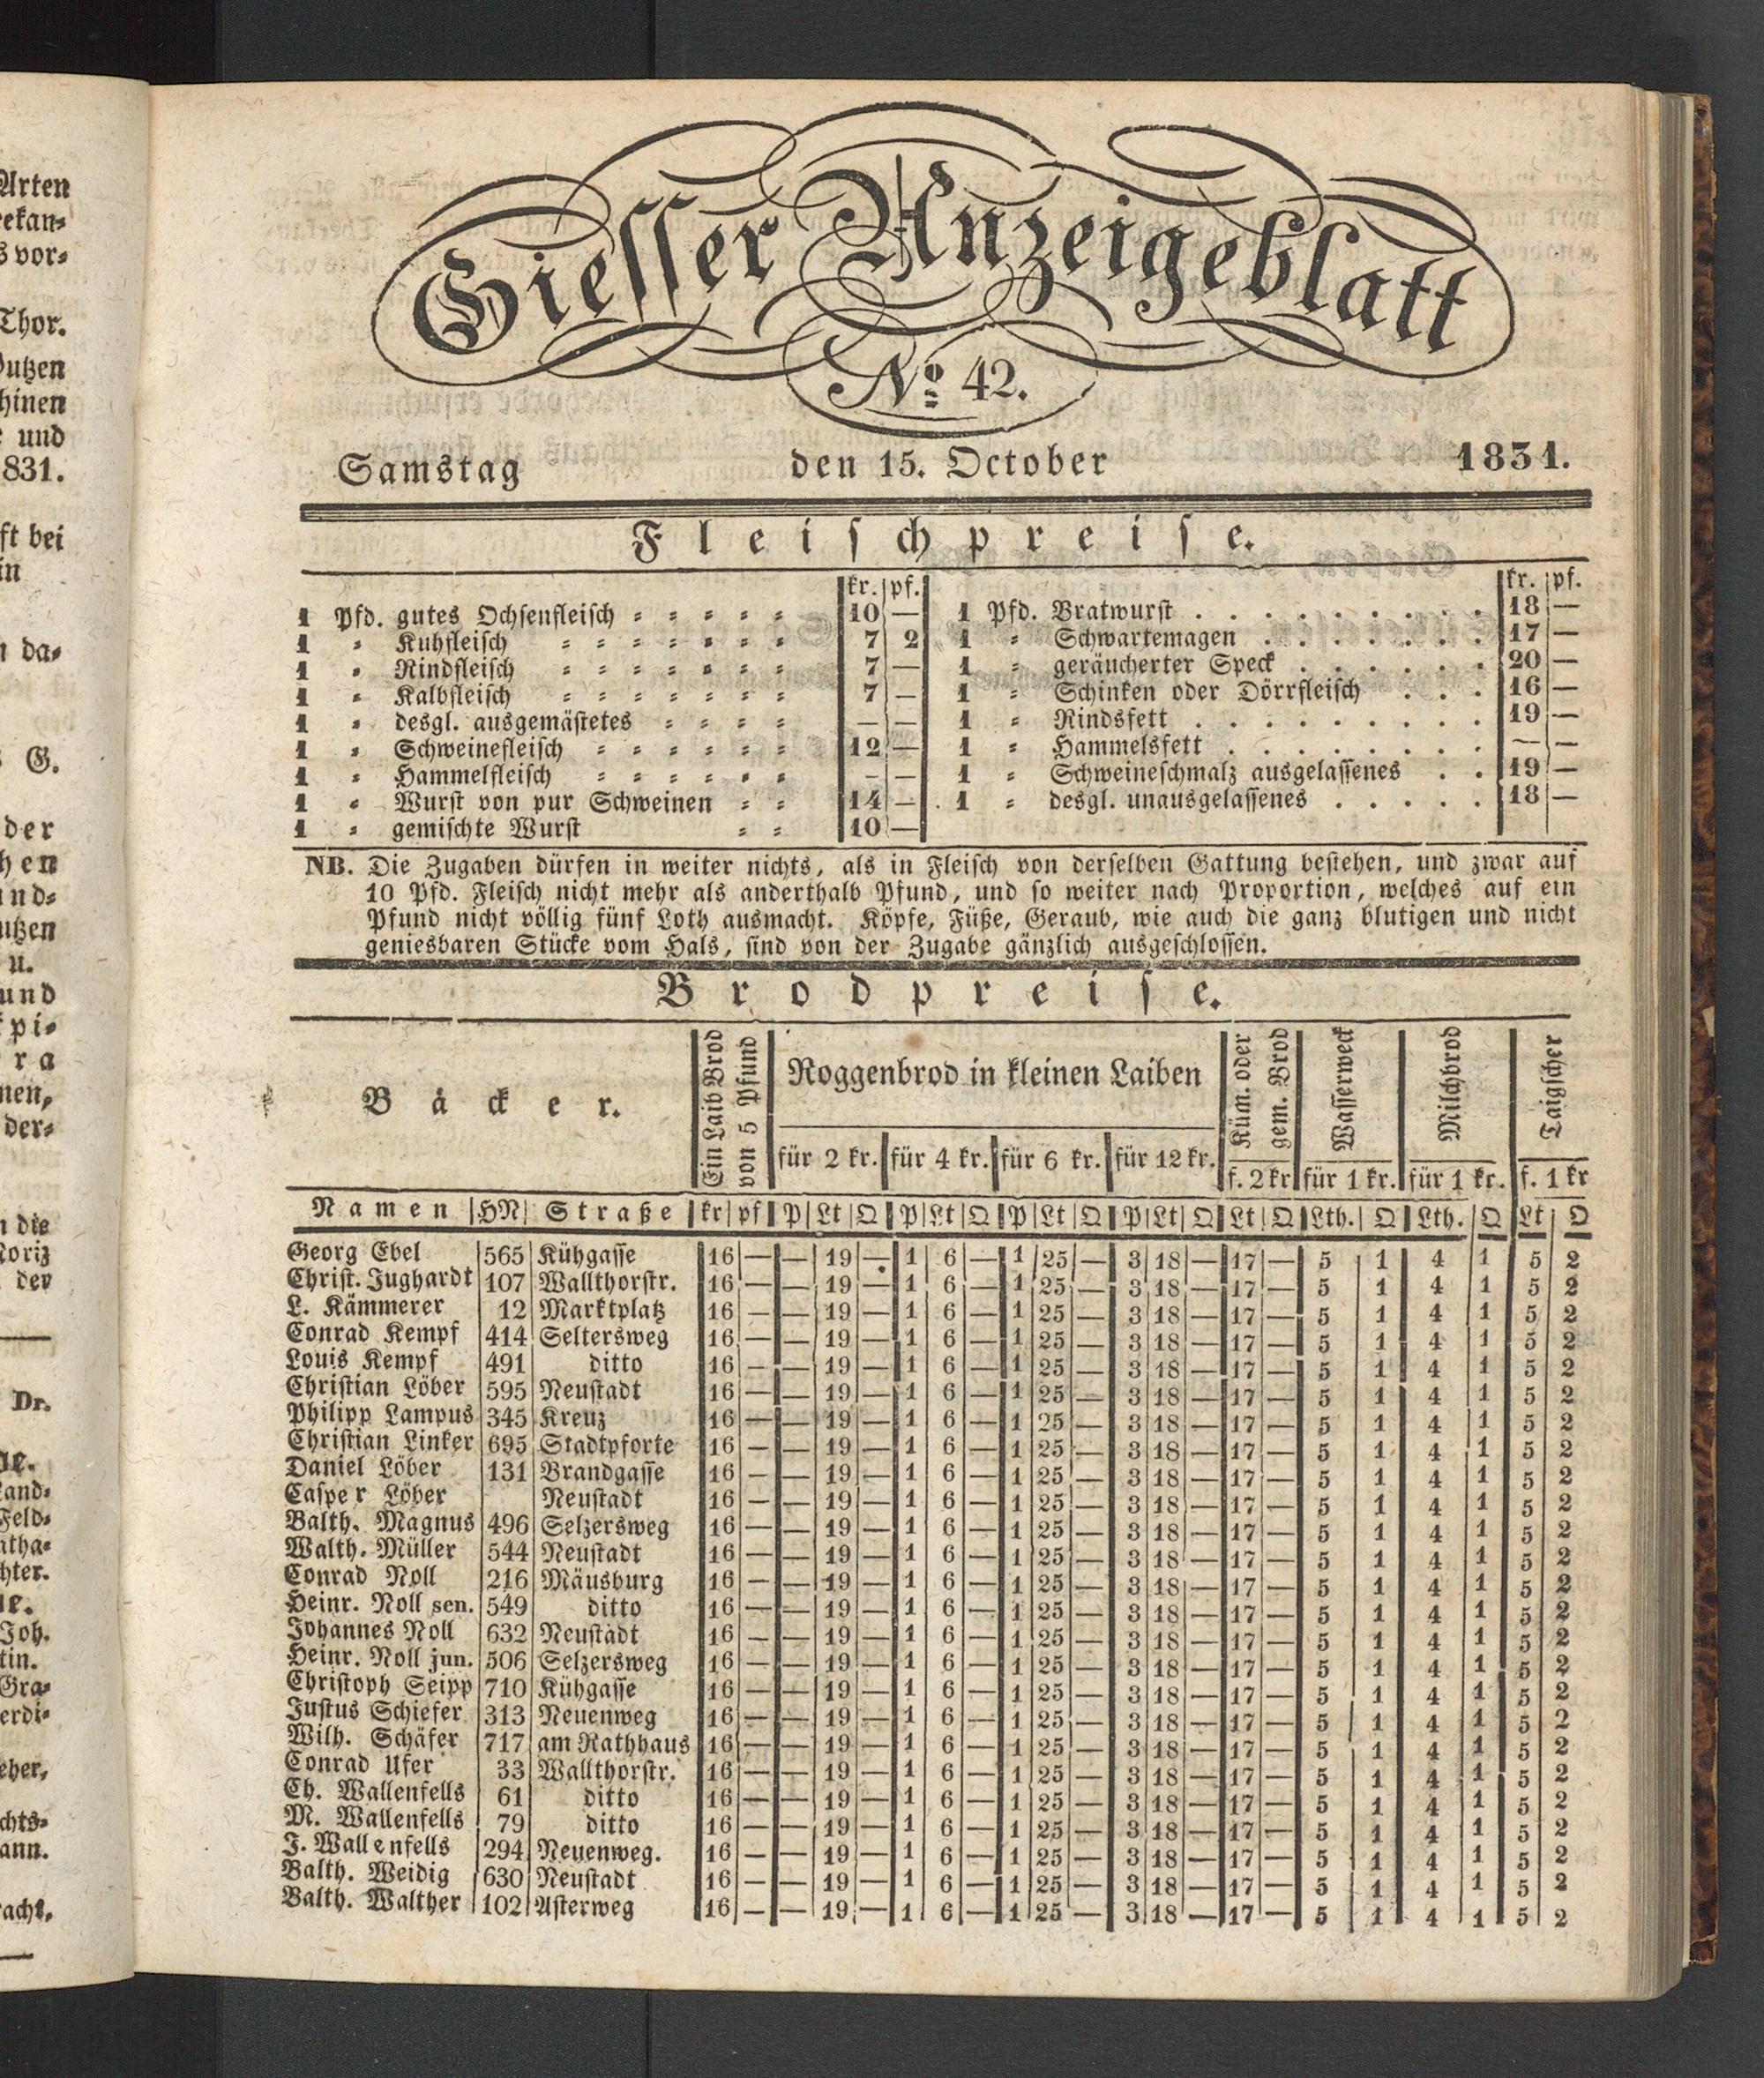 Arten
ekan-
s vor-
Thor.
utzen
hinen
und
831.
ft bei
in
da-
G.
der
hen
und-
utzen
u.
und
pi-
ra
nen,
der-
die
Moriz
der
Dr.
Land-
Feld-
atha-
hter.
Joh.
tin.
Gra-
erdi-
eher,
chts-
ann.
acht,
Giesser Anzeigeblatt
No 42.
Samstag den 15. October 1831.
Fleischpreise.
kr. pf. kr. pf.
1 Pfd. gutes Ochsenfleisch 10 — 1 Pfd. Bratwurst 18 —
1 " Kuhfleisch 7 2 1 " Schwartemagen 17 —
1 " Rindfleisch 7 — 1 " geräucherter Speck 20 —
1 " Kalbfleisch 7 — 1 " Schinken oder Dörrfleisch 16 —
1 " desgl. ausgemästetes — — 1 " Rindsfett 19 —
1 " Schweinefleisch 12 — 1 " Hammelsfett — —
1 " Hammelfleisch — — 1 " Schweineschmalz ausgelassenes 19 —
1 " Wurst von pur Schweinen 14 — 1 " desgl. unausgelassenes 18 —
1 " gemischte Wurst 10 —
NB. Die Zugaben dürfen in weiter nichts, als in Fleisch von derselben Gattung bestehen, und zwar auf
10 Pfd. Fleisch nicht mehr als anderthalb Pfund, und so weiter nach Proportion, welches auf ein
Pfund nicht völlig fünf Loth ausmacht. Köpfe, Füße, Geraub, wie auch die ganz blutigen und nicht
geniesbaren Stücke vom Hals, sind von der Zugabe gänzlich ausgeschlossen.
Brodpreise.
Bäcker.
Ein Laib Brod
von 5 Pfund
Roggenbrod in kleinen Laiben
für 2 kr. für 4 kr. für 6 kr. für 12 kr.
Küm. oder
gem. Brod
f. 2 kr
Wasserweck
für 1 kr.
Milchbrod
für 1 kr.
Taigscher
f. 1 kr
Namen HN Straße kr pf P Lt Q P Lt Q P Lt Q P Lt Q Lt Q Lth. Q Lth. Q Lt Q
Georg Ebel 565 Kühgasse 16 — — 19 — 1 6 — 1 25 — 3 18 — 17 — 5 1 4 1 5 2
Christ. Jughardt 107 Wallthorstr. 16 — — 19 — 1 6 — 1 25 — 3 18 — 17 — 5 1 4 1 5 2
L. Kämmerer 12 Marktplatz 16 — — 19 — 1 6 — 1 25 — 3 18 — 17 — 5 1 4 1 5 2
Conrad Kempf 414 Seltersweg 16 — — 19 — 1 6 — 1 25 — 3 18 — 17 — 5 1 4 1 5 2
Louis Kempf 491 ditto 16 — — 19 — 1 6 — 1 25 — 3 18 — 17 — 5 1 4 1 5 2
Christian Löber 595 Neustadt 16 — — 19 — 1 6 — 1 25 — 3 18 — 17 — 5 1 4 1 5 2
Philipp Lampus 345 Kreuz 16 — — 19 — 1 6 — 1 25 — 3 18 — 17 — 5 1 4 1 5 2
Christian Linker 695 Stadtpforte 16 — — 19 — 1 6 — 1 25 — 3 18 — 17 — 5 1 4 1 5 2
Daniel Löber 131 Brandgasse 16 — — 19 — 1 6 — 1 25 — 3 18 — 17 — 5 1 4 1 5 2
Casper Löber Neustadt 16 — — 19 — 1 6 — 1 25 — 3 18 — 17 — 5 1 4 1 5 2
Balth. Magnus 496 Selzersweg 16 — — 19 — 1 6 — 1 25 — 3 18 — 17 — 5 1 4 1 5 2
Walth. Müller 544 Neustadt 16 — — 19 — 1 6 — 1 25 — 3 18 — 17 — 5 1 4 1 5 2
Conrad Noll 216 Mäusburg 16 — — 19 — 1 6 — 1 25 — 3 18 — 17 — 5 1 4 1 5 2
Heinr. Noll sen. 549 ditto 16 — — 19 — 1 6 — 1 25 — 3 18 — 17 — 5 1 4 1 5 2
Johannes Noll 632 Neustadt 16 — — 19 — 1 6 — 1 25 — 3 18 — 17 — 5 1 4 1 5 2
Heinr. Noll jun. 506 Selzersweg 16 — — 19 — 1 6 — 1 25 — 3 18 — 17 — 5 1 4 1 5 2
Christoph Seipp 710 Kühgasse 16 — — 19 — 1 6 — 1 25 — 3 18 — 17 — 5 1 4 1 5 2
Justus Schiefer 313 Neuenweg 16 — — 19 — 1 6 — 1 25 — 3 18 — 17 — 5 1 4 1 5 2
Wilh. Schäfer 717 am Rathhaus 16 — — 19 — 1 6 — 1 25 — 3 18 — 17 — 5 1 4 1 5 2
Conrad Ufer 33 Wallthorstr. 16 — — 19 — 1 6 — 1 25 — 3 18 — 17 — 5 1 4 1 5 2
Ch. Wallenfells 61 ditto 16 — — 19 — 1 6 — 1 25 — 3 18 — 17 — 5 1 4 1 5 2
M. Wallenfells 79 ditto 16 — — 19 — 1 6 — 1 25 — 3 18 — 17 — 5 1 4 1 5 2
J. Wallenfells 294 Neuenweg. 16 — — 19 — 1 6 — 1 25 — 3 18 — 17 — 5 1 4 1 5 2
Balth. Weidig 630 Neustadt 16 — — 19 — 1 6 — 1 25 — 3 18 — 17 — 5 1 4 1 5 2
Balth. Walther 102 Asterweg 16 — — 19 — 1 6 — 1 25 — 3 18 — 17 — 5 1 4 1 5 2